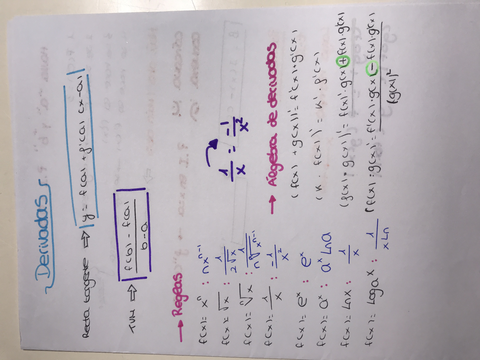 Derivadas
Recta tangente ⇒ y = f(a) + f'(a) (x-a)
TVM ⇒ f(b) - f(a) / b-a
→ Reglas
f(x) = xⁿ : nxⁿ⁻¹
f(x) = √x : 1/2√x
f(x) = ⁿ√x : 1/n ⁿ√xⁿ⁻¹
f(x) = 1/x : -1/x²
f(x) = eˣ : eˣ
f(x) = aˣ : aˣ Lna
f(x) = Lnx : 1/x
f(x) = Logaˣ : 1/x Ln
1/x = -1/x²
→ Álgebra de derivadas
(f(x) + g(x))' = f'(x) + g'(x)
(K · f(x))' = K · f'(x)
(f(x) · g(x))' = f(x)' · g(x) + f(x) · g'(x)
(f(x) : g(x))' = f'(x) · g(x) - f(x) · g'(x) / (g(x))²